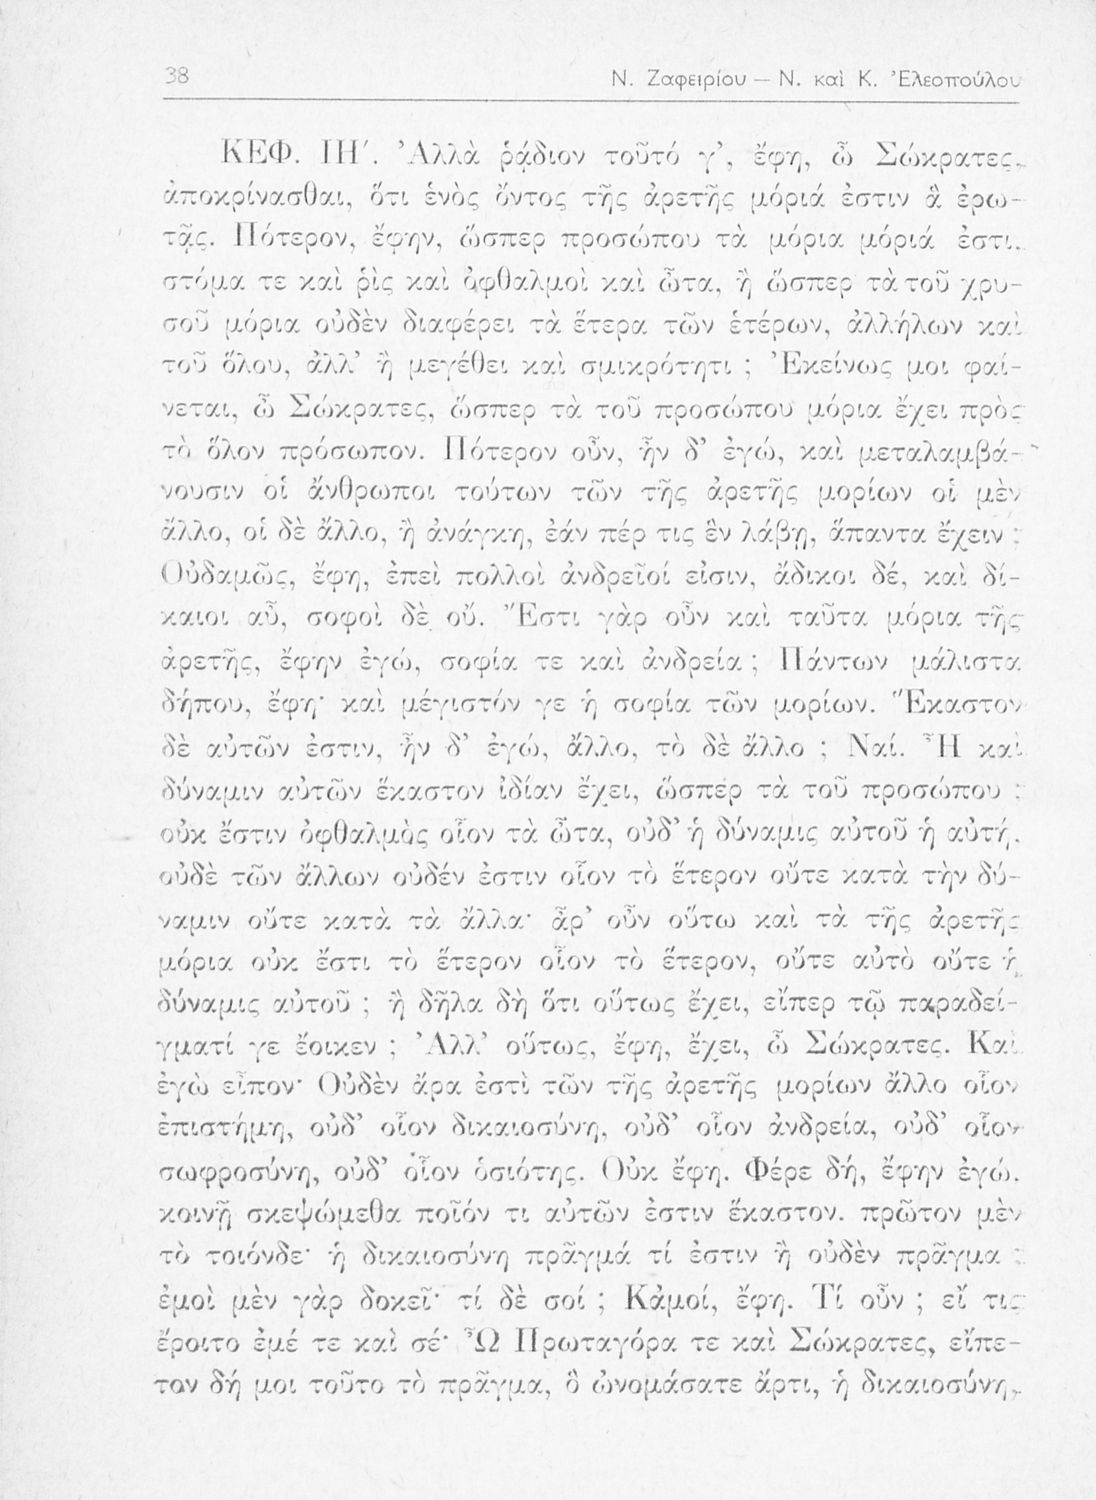 38 Ν. Ζαφειρίου — Ν. καὶ Κ. Ἐλεοπούλου
ΚΕΦ. ΙΗ΄. Ἀλλὰ ῥᾴδιον τοῦτό γ’, ἔφη, ὦ Σώκρατες,
ἀποκρίνασθαι, ὅτι ἑνὸς ὄντος τῆς ἀρετῆς μόριά ἐστιν ἃ ἐρω-
τᾷς. Πότερον, ἔφην, ὥσπερ προσώπου τὰ μόρια μόριά ἐστι,
στόμα τε καὶ ῥὶς καὶ ὀφθαλμοὶ καὶ ὦτα, ἢ ὥσπερ τὰ τοῦ χρυ-
σοῦ μόρια οὐδὲν διαφέρει τὰ ἕτερα τῶν ἑτέρων, ἀλλήλων καὶ
τοῦ ὅλου, ἀλλ’ ἢ μεγέθει καὶ σμικρότητι ; Ἐκείνως μοι φαί-
νεται, ὦ Σώκρατες, ὥσπερ τὰ τοῦ προσώπου μόρια ἔχει πρὸς
τὸ ὅλον πρόσωπον. Πότερον οὖν, ἦν δ’ ἐγώ, καὶ μεταλαμβά-
νουσιν οἱ ἄνθρωποι τούτων τῶν τῆς ἀρετῆς μορίων οἱ μὲν
ἄλλο, οἱ δὲ ἄλλο, ἢ ἀνάγκη, ἐάν πέρ τις ἓν λάβῃ, ἅπαντα ἔχειν ;
Οὐδαμῶς, ἔφη, ἐπεὶ πολλοὶ ἀνδρεῖοί εἰσιν, ἄδικοι δέ, καὶ δί-
καιοι αὖ, σοφοὶ δὲ οὔ. Ἔστι γὰρ οὖν καὶ ταῦτα μόρια τῆς
ἀρετῆς, ἔφην ἐγώ, σοφία τε καὶ ἀνδρεία ; Πάντων μάλιστα
δήπου, ἔφη· καὶ μέγιστόν γε ἡ σοφία τῶν μορίων. Ἕκαστον
δὲ αὐτῶν ἐστιν, ἦν δ’ ἐγώ, ἄλλο, τὸ δὲ ἄλλο ; Ναί. Ἦ καὶ
δύναμιν αὐτῶν ἕκαστον ἰδίαν ἔχει, ὥσπερ τὰ τοῦ προσώπου ;
οὐκ ἔστιν ὀφθαλμὸς οἷον τὰ ὦτα, οὐδ’ ἡ δύναμις αὐτοῦ ἡ αὐτή.
οὐδὲ τῶν ἄλλων οὐδέν ἐστιν οἷον τὸ ἕτερον οὔτε κατὰ τὴν δύ-
ναμιν οὔτε κατὰ τὰ ἄλλα· ἆρ’ οὖν οὕτω καὶ τὰ τῆς ἀρετῆς
μόρια οὐκ ἔστι τὸ ἕτερον οἷον τὸ ἕτερον, οὔτε αὐτὸ οὔτε ἡ
δύναμις αὐτοῦ ; ἢ δῆλα δὴ ὅτι οὕτως ἔχει, εἴπερ τῷ παραδεί-
γματί γε ἔοικεν ; Ἀλλ’ οὕτως, ἔφη, ἔχει, ὦ Σώκρατες. Καὶ
ἐγὼ εἶπον· Οὐδὲν ἄρα ἐστὶ τῶν τῆς ἀρετῆς μορίων ἄλλο οἷον
ἐπιστήμη, οὐδ’ οἷον δικαιοσύνη, οὐδ’ οἷον ἀνδρεία, οὐδ’ οἷον
σωφροσύνη, οὐδ’ οἷον ὁσιότης. Οὐκ ἔφη. Φέρε δή, ἔφην ἐγώ.
κοινῇ σκεψώμεθα ποῖόν τι αὐτῶν ἐστιν ἕκαστον. πρῶτον μὲν
τὸ τοιόνδε· ἡ δικαιοσύνη πρᾶγμά τί ἐστιν ἢ οὐδὲν πρᾶγμα ;
ἐμοὶ μὲν γὰρ δοκεῖ· τί δὲ σοί ; Κἀμοί, ἔφη. Τί οὖν ; εἴ τις
ἔροιτο ἐμέ τε καὶ σέ· Ὦ Πρωταγόρα τε καὶ Σώκρατες, εἴπε-
τον δή μοι τοῦτο τὸ πρᾶγμα, ὃ ὠνομάσατε ἄρτι, ἡ δικαιοσύνη,